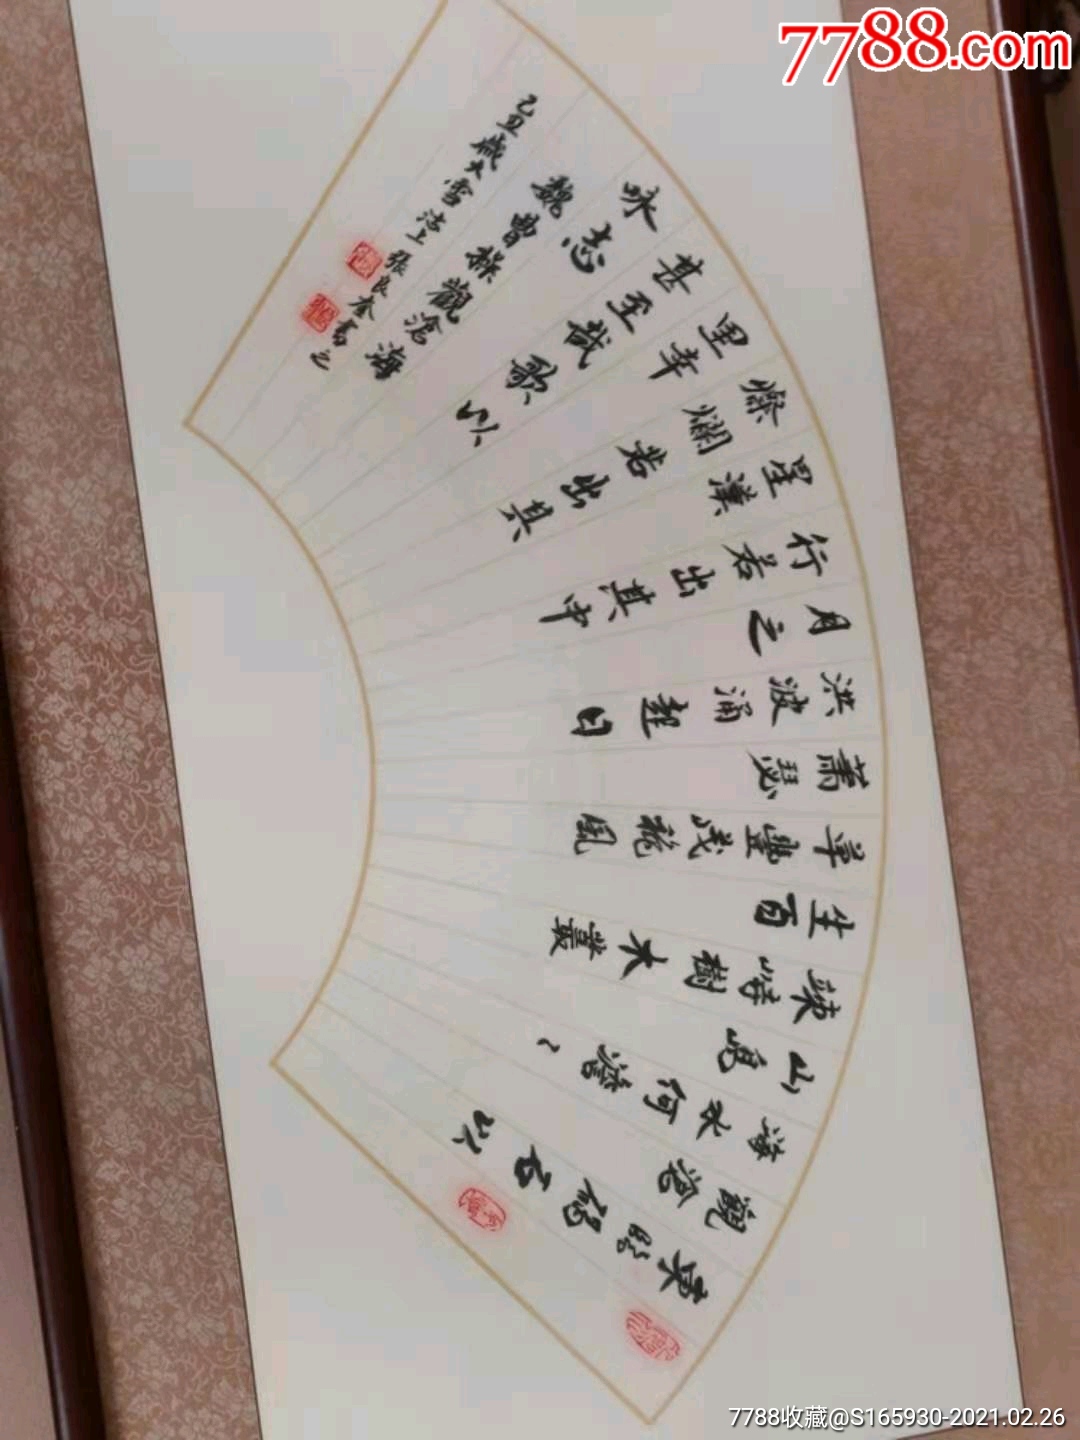 東臨碣石以
觀滄
海水何澹〻
山島
竦峙樹木叢
生百
草豐茂秋風
蕭瑟
洪波涌起日
月之
行若出其中
星漢
燦爛若出其
里幸
甚至哉歌以
咏志
魏曹操觀滄海
己丑歲大雪沽上張良奎書之
7788.com
7788收藏@S165930-2021.02.26